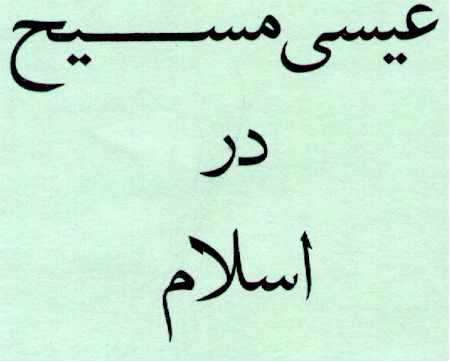 عیسی مسیح
در
اسلام